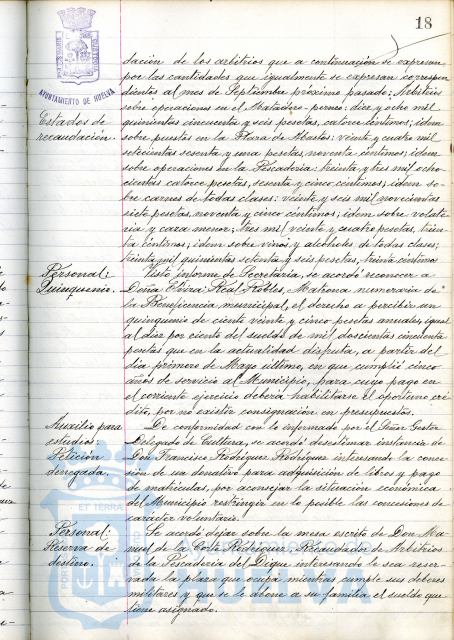 18
AYUNTAMIENTO DE HUELVA
dación de los arbitrios que a continuación se expresan
por las cantidades que igualmente se expresan correspon
dientes al mes de Septiembre próximo pasado; Arbitrios
sobre operaciones en el Matadero-perneo: diez y ocho mil
Estados de
recaudación.
quinientas cincuenta y seis pesetas, catorce céntimos; idem
sobre puestos en la Plaza de Abastos: veinte y cuatro mil
setecientas sesenta y una pesetas, noventa céntimos; idem
sobre operaciones en la Pescadería: treinta y tres mil ocho
cientas catorce pesetas, sesenta y cinco céntimos; idem so-
bre carnes de todas clases: veinte y seis mil novecientas
siete pesetas, noventa y cinco céntimos; idem sobre volate-
ría y caza menor; tres mil veinte y cuatro pesetas, trein
ta céntimos; idem sobre vinos y alcoholes de todas clases;
treinta mil quinientas setenta y seis pesetas, treinta céntimos
Personal:
Quinquenio.
Visto informe de Secretaría, se acordó reconocer a
Doña Elvira Real Robles, Matrona numeraria de
la Beneficencia municipal, el derecho a percibir un
quinquenio de ciento veinte y cinco pesetas anuales, igual
al diez por ciento del sueldo de mil doscientas cincuenta
pesetas que en la actualidad disfruta, a partir del
día primero de Mayo último, en que cumplió cinco
años de servicio al Municipio, para cuyo pago en
el corriente ejercicio deberá habilitarse el oportuno cré
dito, por no existir consignación en presupuestos.
Auxilio para
estudios.
Petición
denegada.
De conformidad con lo informado por el Señor Gestor
Delegado de Cultura, se acordó desestimar instancia de
Don Francisco Rodríguez Rodríguez interesando la conce
sión de un donativo para adquisición de libros y pago
de matrículas, por aconsejar la situación económica
del Municipio restringir en lo posible las concesiones de
carácter voluntario.
Personal:
Reserva de
destino.
Se acordó dejar sobre la mesa escrito de Don Ma-
nuel de la Corte Rodríguez, Recaudador de Arbitrios
de la Pescadería del Dique interesando le sea reser-
vada la plaza que ocupa mientras cumple sus deberes
militares y que se le abone a su familia el sueldo que
tiene asignado.